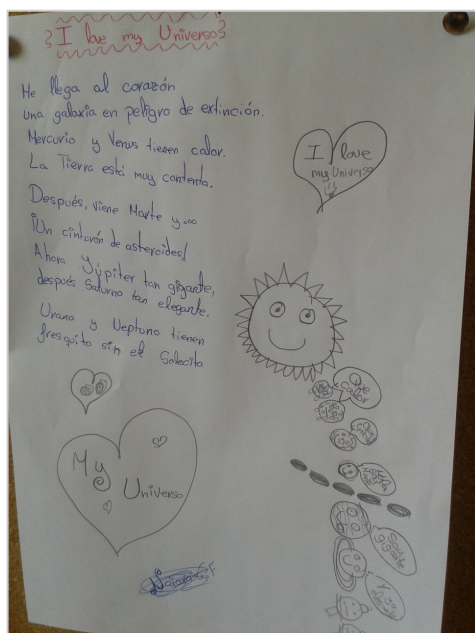 I love my Universo
Me llega al corazón
una galaxia en peligro de extinción.
Mercurio y Venus tienen calor.
La Tierra está muy contenta.
Después, viene Marte y...
¡Un cinturón de asteroides!
Ahora Yúpiter tan gigante,
después Saturno tan elegante.
Urano y Neptuno tienen
fresquito sin el Solecito
I love
my Universo
Que
Calor
My
Universo
Soy
gigante
Y yo